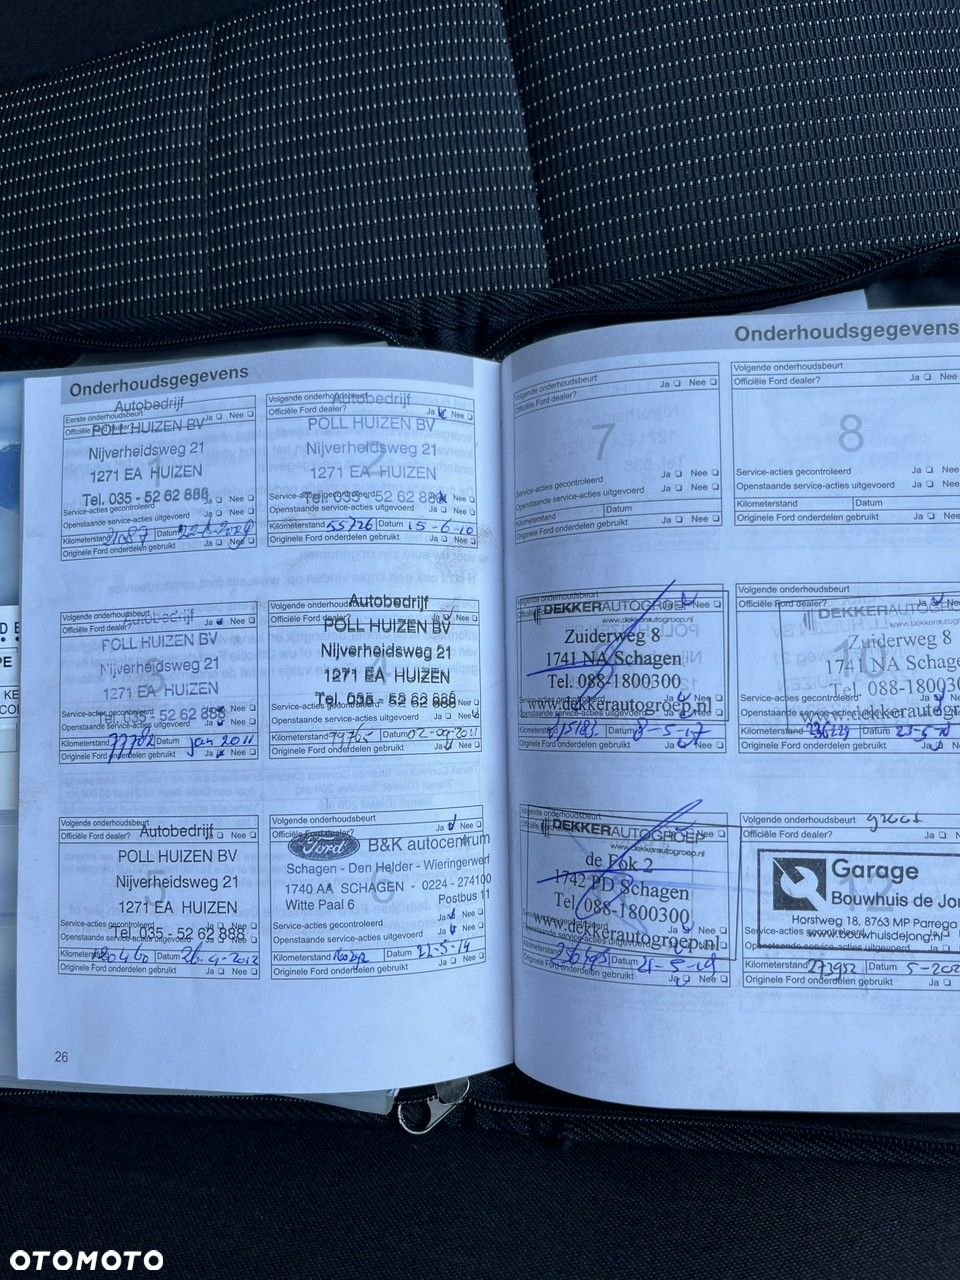 Onderhoudsgegevens
Autobedrijf
Eerste onderhoudsbeurt
Officiële Ford dealer? Ja Nee
POLL HUIZEN BV
Nijverheidsweg 21
1
1271 EA HUIZEN
Tel. 035 - 52 62 888
Service-acties gecontroleerd Ja Nee
Openstaande service-acties uitgevoerd Ja Nee
Kilometerstand Datum
Originele Ford onderdelen gebruikt Ja Nee
Volgende onderhoudsbeurt
Autobedrijf
Officiële Ford dealer? Ja Nee
POLL HUIZEN BV
Nijverheidsweg 21
2
1271 EA HUIZEN
Service-acties gecontroleerd
Tel. 035 - 52 62 888 Nee
Openstaande service-acties uitgevoerd Ja Nee
Kilometerstand 55726 Datum 15-6-10
Originele Ford onderdelen gebruikt Ja Nee
Volgende onderhoudsbeurt
Autobedrijf
Officiële Ford dealer? Ja Nee
POLL HUIZEN BV
Nijverheidsweg 21
3
1271 EA HUIZEN
Service-acties gecontroleerd Ja Nee
Tel. 035 - 52 62 888
Openstaande service-acties uitgevoerd Ja Nee
Kilometerstand 77782 Datum jan 2011
Originele Ford onderdelen gebruikt Ja Nee
Autobedrijf
Volgende onderhoudsbeurt
Officiële Ford dealer? Ja Nee
POLL HUIZEN BV
Nijverheidsweg 21
4
1271 EA HUIZEN
Tel. 035 - 52 62 888
Service-acties gecontroleerd Ja Nee
Openstaande service-acties uitgevoerd Ja Nee
Kilometerstand 99765 Datum 02-09-2011
Originele Ford onderdelen gebruikt Ja Nee
Volgende onderhoudsbeurt
Officiële Ford dealer? Autobedrijf Ja Nee
POLL HUIZEN BV
Nijverheidsweg 21
5
1271 EA HUIZEN
Service-acties gecontroleerd Ja Nee
Tel. 035 - 52 62 888
Openstaande service-acties uitgevoerd Ja Nee
Kilometerstand Datum 26-4-2012
Originele Ford onderdelen gebruikt Ja Nee
Volgende onderhoudsbeurt
Officiële Ford dealer? Ja Nee
Ford B&K autocentrum
Schagen - Den Helder - Wieringerwerf
6
1740 AA SCHAGEN - 0224 - 274100
Witte Paal 6 Postbus 11
Service-acties gecontroleerd Ja Nee
Openstaande service-acties uitgevoerd Ja Nee
Kilometerstand Datum 22-5-14
Originele Ford onderdelen gebruikt Ja Nee
26
Onderhoudsgegevens
Volgende onderhoudsbeurt
Officiële Ford dealer? Ja Nee
7
Service-acties gecontroleerd Ja Nee
Openstaande service-acties uitgevoerd Ja Nee
Kilometerstand Datum
Originele Ford onderdelen gebruikt Ja Nee
Volgende onderhoudsbeurt
Officiële Ford dealer? Ja Nee
8
Service-acties gecontroleerd Ja Nee
Openstaande service-acties uitgevoerd Ja Nee
Kilometerstand Datum
Originele Ford onderdelen gebruikt Ja Nee
Volgende onderhoudsbeurt
DEKKERAUTOGROEP Nee
www.dekkerautogroep.nl
Zuiderweg 8
1741 NA Schagen
Tel. 088-1800300
Service-acties gecontroleerd Ja Nee
www.dekkerautogroep.nl
Openstaande service-acties uitgevoerd Ja Nee
Kilometerstand Datum 8-5-17
Originele Ford onderdelen gebruikt Ja Nee
Volgende onderhoudsbeurt
Officiële Ford dealer? Ja Nee
DEKKERAUTO
www.dekkerautogroep
Zuiderweg 8
10
1741 NA Schage
Tel. 088-18003
Service-acties gecontroleerd
www.dekkerautogroe
Openstaande service-acties uitgevoerd
Kilometerstand Datum
Originele Ford onderdelen gebruikt Ja Nee
Volgende onderhoudsbeurt
DEKKERAUTOGROEP
www.dekkerautogroep.nl
de Fok 2
1742 PD Schagen
Tel. 088-1800300
Service-acties gecontroleerd Ja Nee
www.dekkerautogroep.nl
Openstaande service-acties uitgevoerd Nee
Kilometerstand Datum 21-5-19
Originele Ford onderdelen gebruikt Ja Nee
Volgende onderhoudsbeurt groot
Officiële Ford dealer? Ja Nee
Garage
Bouwhuis de Jon
Horstweg 18, 8763 MP Parrega
www.bouwhuisdejong.nl
Service-acties gecontroleerd
Openstaande service-acties uitgevoerd Ja
Kilometerstand 273952 Datum 5-202
Originele Ford onderdelen gebruikt Ja
OTOMOTO